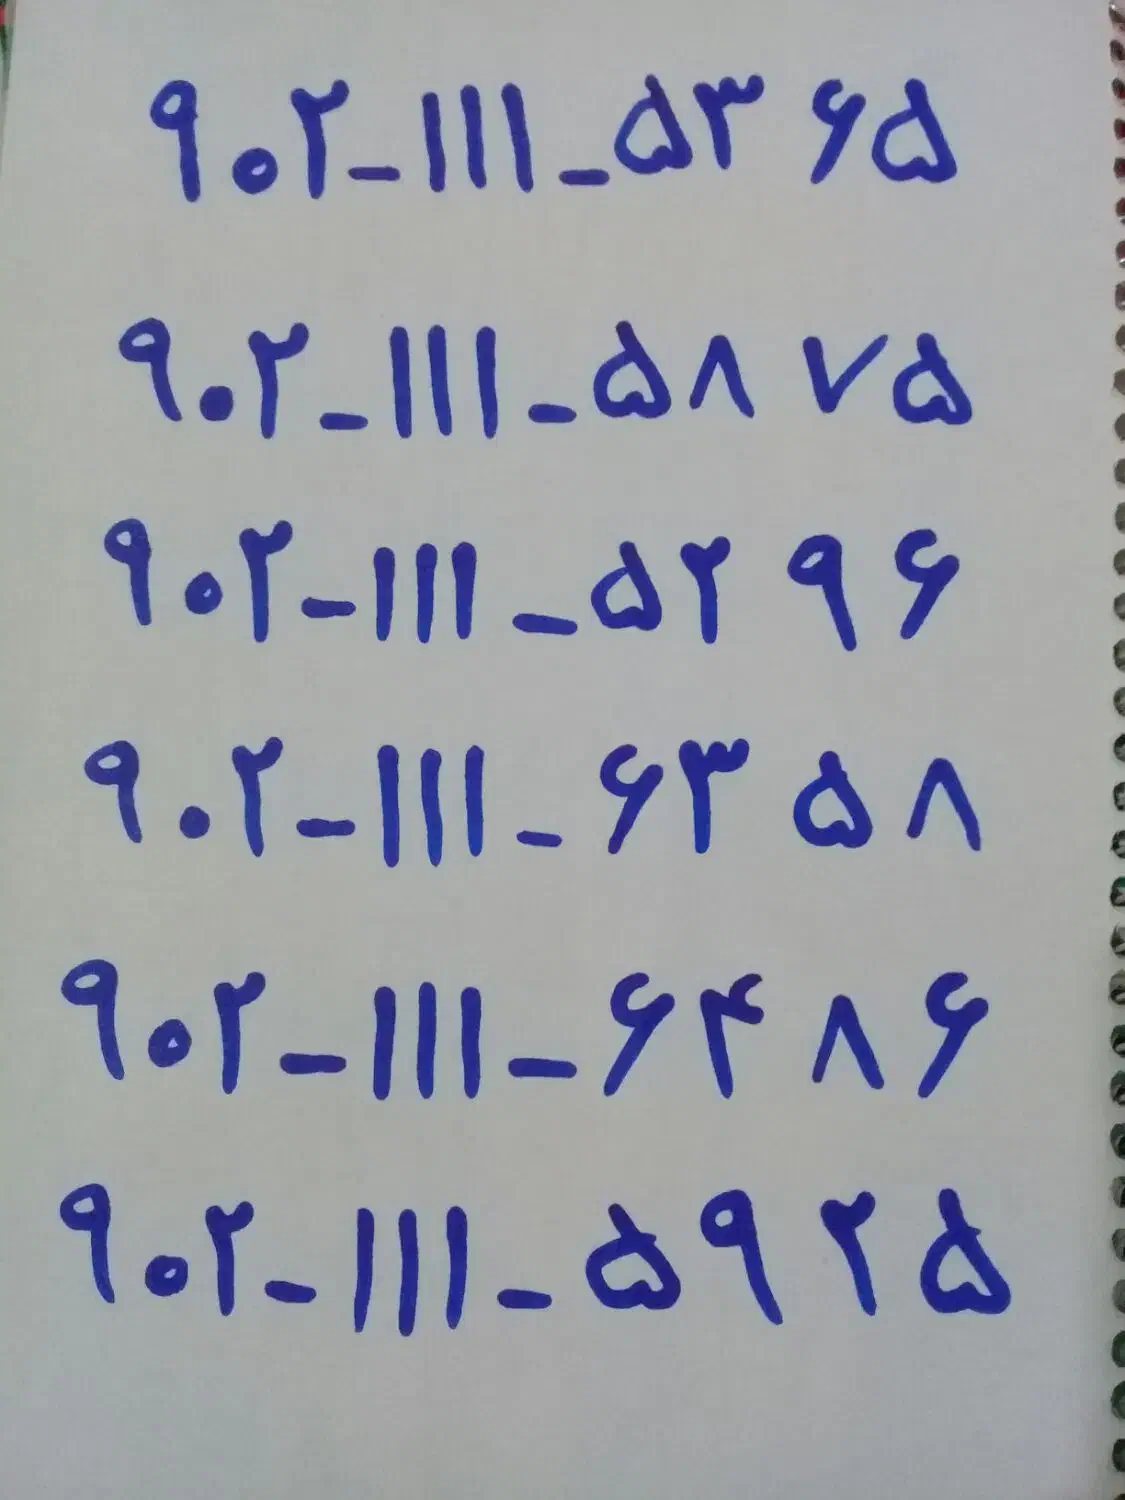 ۹۰۲-۱۱۱-۵۳ ۶۵
۹۰۲-۱۱۱-۵۸ ۷۵
۹۰۲-۱۱۱-۵۲ ۹۶
۹۰۲-۱۱۱-۶۳ ۵۸
۹۰۲-۱۱۱-۶۴ ۸۶
۹۰۲-۱۱۱-۵۹ ۲۵